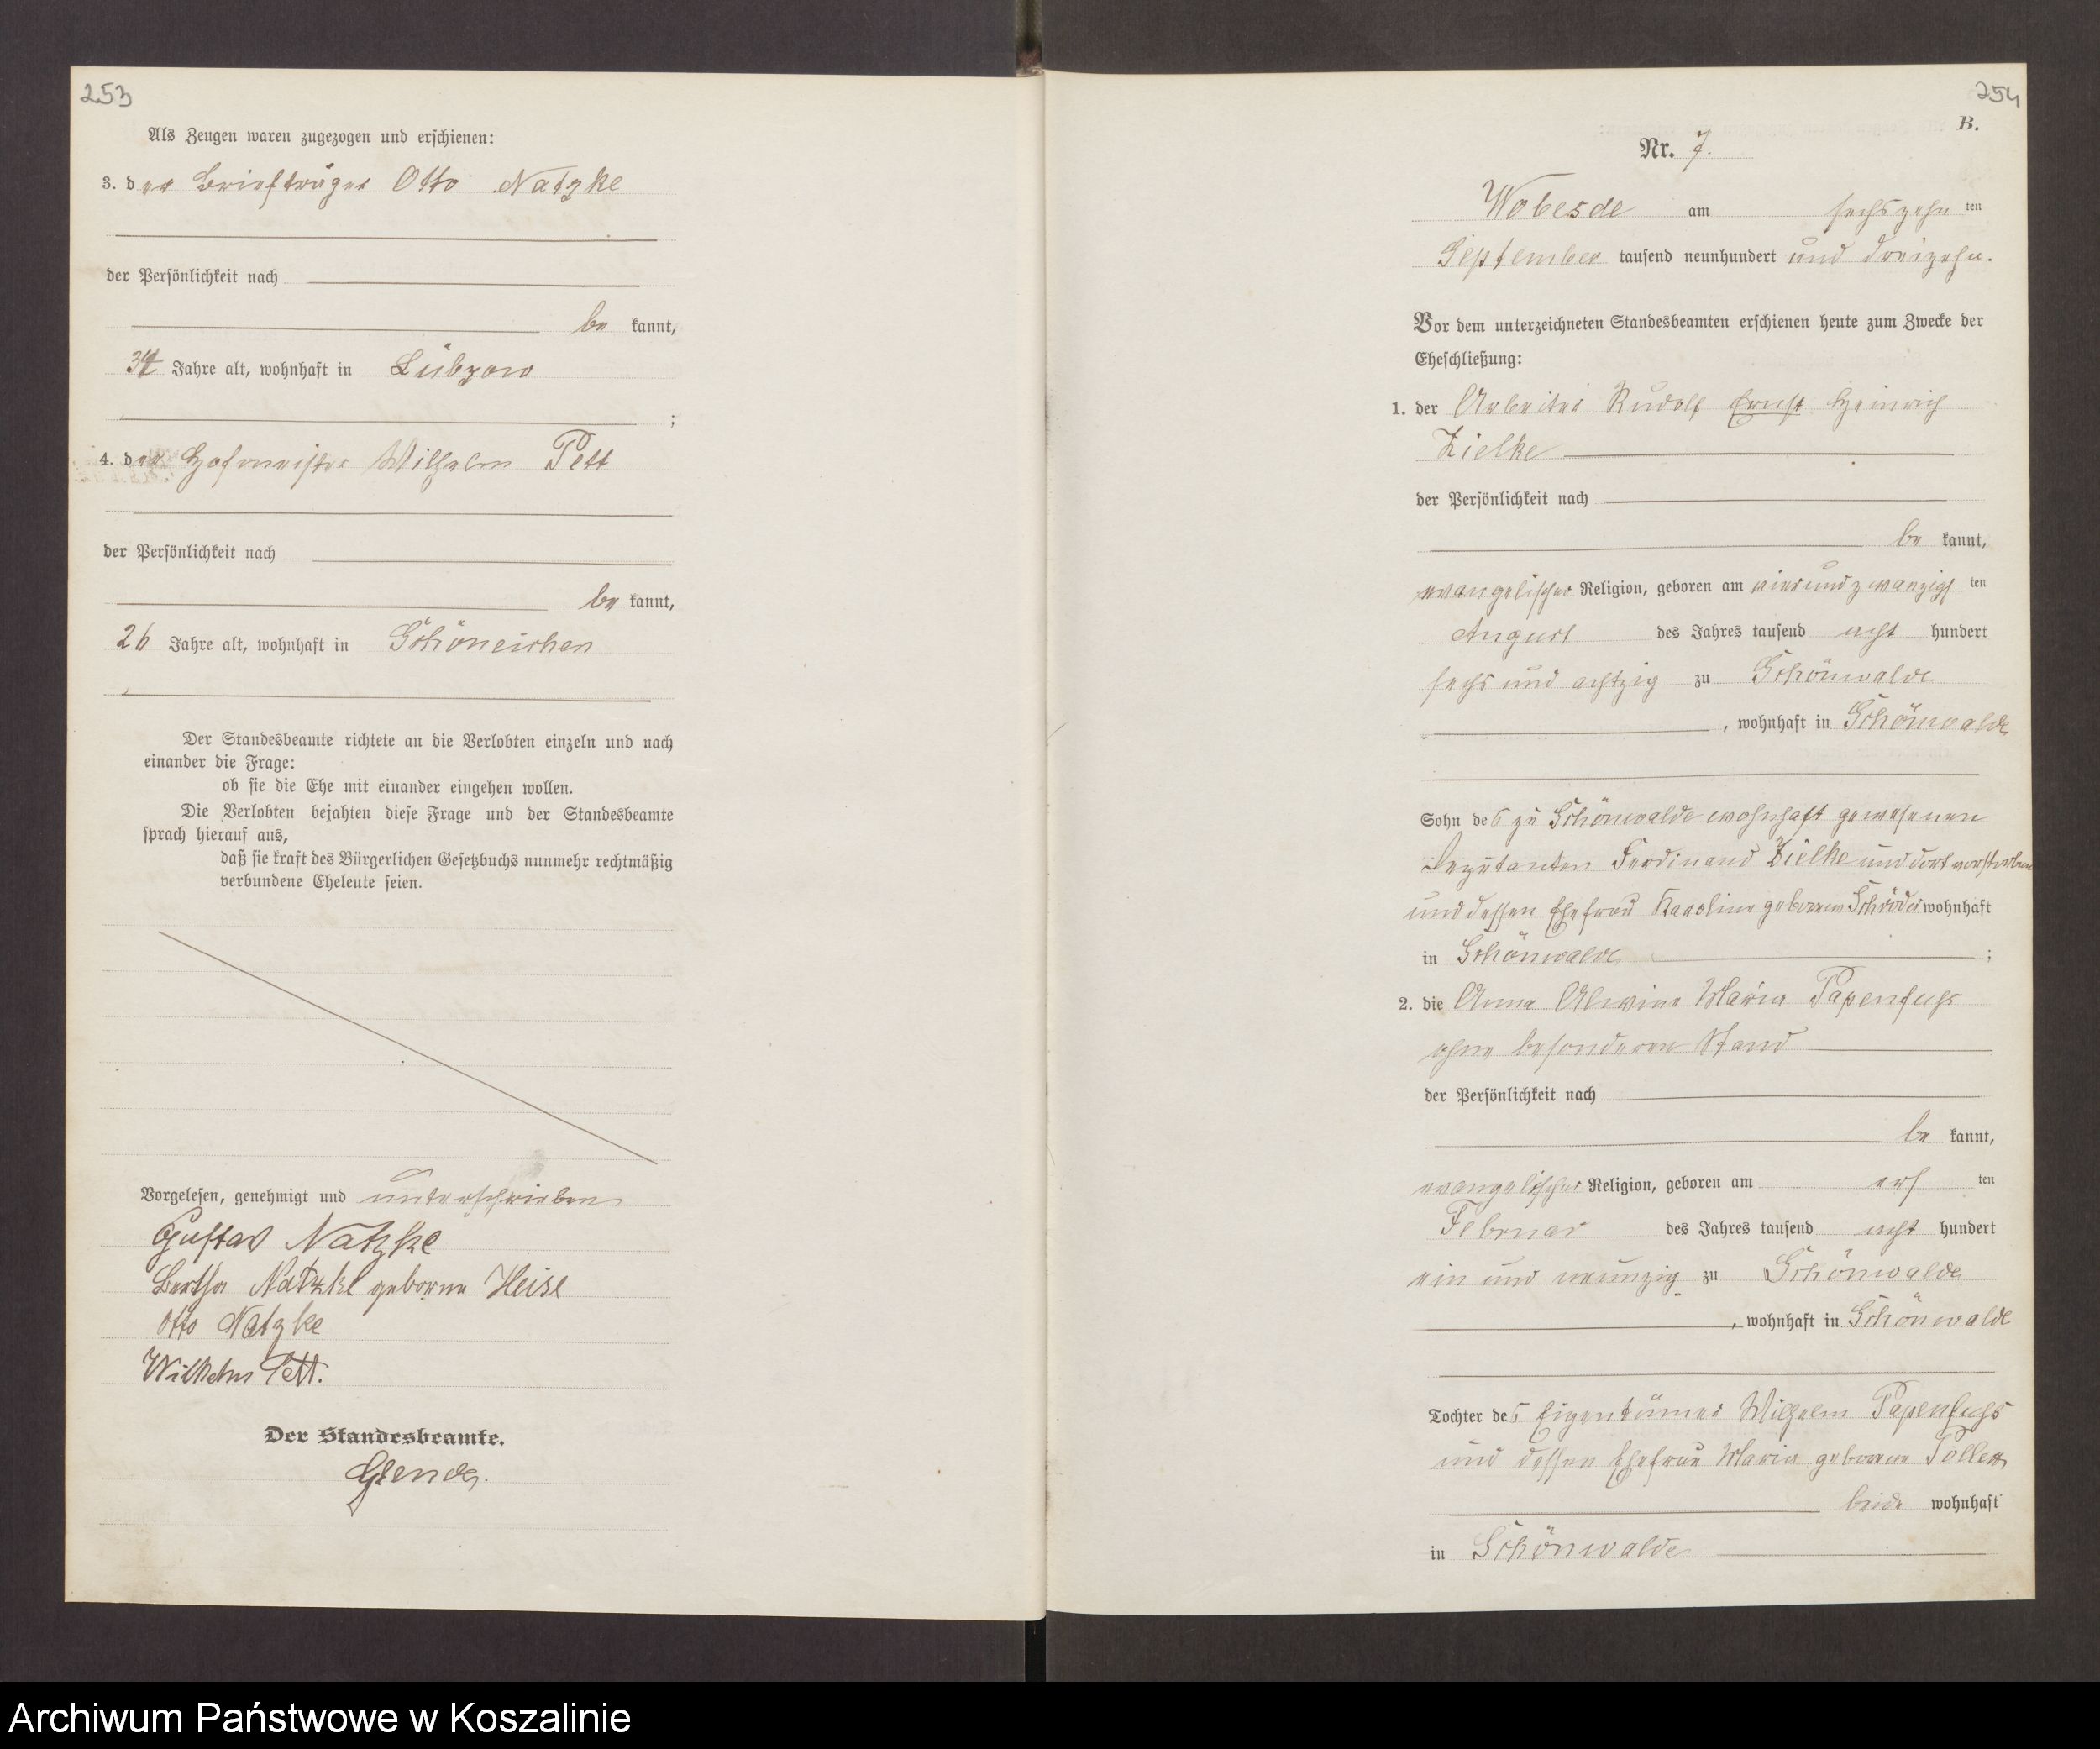 253
Als Zeugen waren zugezogen und erschienen:
3. der Briefträger Otto Natzke
der Persönlichkeit nach
be kannt,
34 Jahre alt, wohnhaft in Lübzow
;
4. der Hofmeister Wilhelm Pett
der Persönlichkeit nach
be kannt,
26 Jahre alt, wohnhaft in Schöneichen
Der Standesbeamte richtete an die Verlobten einzeln und nach
einander die Frage:
ob sie die Ehe mit einander eingehen wollen.
Die Verlobten bejahten diese Frage und der Standesbeamte
sprach hierauf aus,
daß sie kraft des Bürgerlichen Gesetzbuchs nunmehr rechtmäßig
verbundene Eheleute seien.
Vorgelesen, genehmigt und unterschrieben
Gustav Natzke
Bertha Natzke geborne Heise
Otto Natzke
Wilhelm Pett.
Der Standesbeamte.
254
B.
Nr. 7.
Wobesde am sechszehn ten
September tausend neunhundert und dreizehn.
Vor dem unterzeichneten Standesbeamten erschienen heute zum Zwecke der
Eheschließung:
1. der Arbeiter Rudolf Ernst Heinrich
Zielke
der Persönlichkeit nach
be kannt,
evangelischer Religion, geboren am vierundzwanzigs ten
August des Jahres tausend acht hundert
sechs und achtzig zu Schönwalde
, wohnhaft in Schönwalde
Sohn des zu Schönwalde wohnhaft gewesenen
Deputanten Ferdinand Zielke und dort verstorben
und dessen Ehefrau Karoline geborene Schröder wohnhaft
in Schönwalde ;
2. die Anna Alwine Maria Papenfuhs
ohne besonderen Stand
der Persönlichkeit nach
be kannt,
evangelischer Religion, geboren am ers ten
Februar des Jahres tausend acht hundert
ein und neunzig zu Schönwalde
, wohnhaft in Schönwalde
Tochter des Eigentümer Wilhelm Papenfuhs
und dessen Ehefrau Maria geborene
beide wohnhaft
in Schönwalde
Archiwum Państwowe w Koszalinie